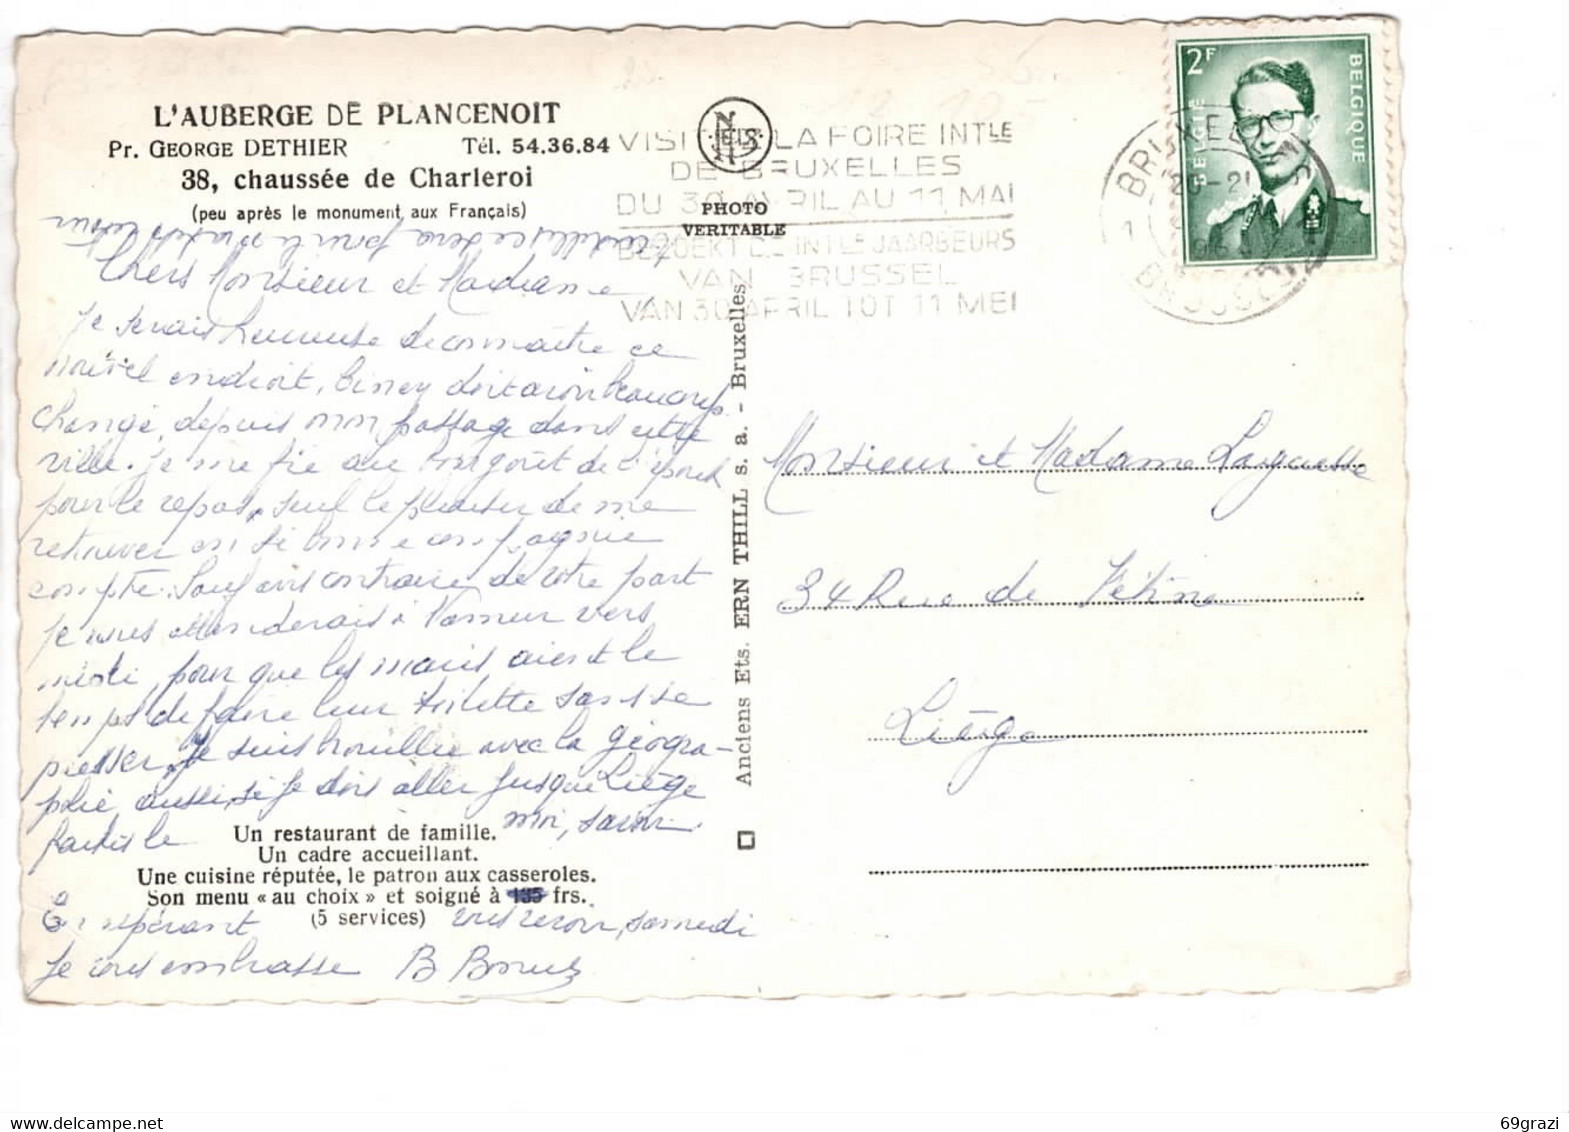 L'AUBERGE DE PLANCENOIT
Pr. GEORGE DETHIER Tél. 54.36.84
38, chaussée de Charleroi
(peu après le monument aux Français)
NELS
PHOTO
VERITABLE
VISITEZ LA FOIRE INTLE
DE BRUXELLES
DU 30 AVRIL AU 11 MAI
BEZOEKT DE INTLE JAARBEURS
VAN BRUSSEL
VAN 30 APRIL TOT 11 MEI
BRUXELLES
20-21
BRUSSEL
2F
BELGIE BELGIQUE
ce sera pour le
Chers Monsieur et Madame,
Je serais heureuse de connaître ce
nouvel endroit, doit avoir beaucoup
changé, depuis mon passage dans cette
ville. Je me fie au bon goût de
pour le repas, seul le plaisir de me
retrouver en si bonne compagnie
compte. Sauf avis contraire de votre part
je vous attenderais à Namur vers
midi, pour que les maris aient le
temps de faire leur toilette sans se
presser. Je suis brouillée avec la géogra-
phie, aussi, si je dois aller jusque Liège
faites le moi, savoir.
Un restaurant de famille.
Un cadre accueillant.
Une cuisine réputée, le patron aux casseroles.
Son menu « au choix » et soigné à 135 frs.
(5 services)
En espérant vous revoir, samedi
je vous embrasse B
Anciens Ets. ERN THILL s. a. - Bruxelles
Monsieur et Madame
34 Rue de Fétinne
Liège
delcampe.net
69grazi